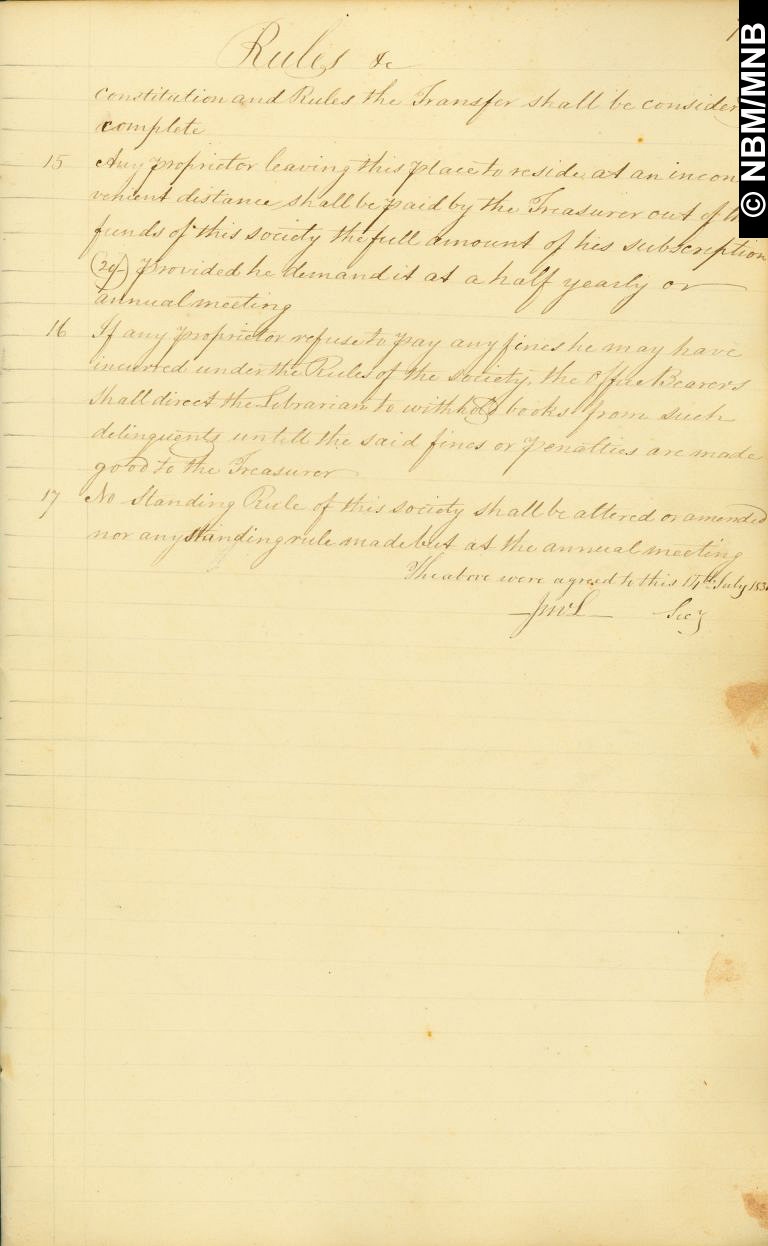 Rules &c
constitution and Rules the Transfer shall be consider
complete
15 Any proprietor leaving this place to reside at an incon
venient distance shall be paid by the Treasurer out of th
funds of this society the full amount of his subscription
(20/-) provided he demand it at a half yearly or
annual meeting
16 If any proprietor refuse to pay any fines he may have
incurred under the Rules of the society, the Office Bearers
shall direct the Librarian to withhold books from such
delinquents untill the said fines or penalties are made
good to the Treasurer
17 No Standing Rule of this society shall be altered or amended
nor any standing rule made but at the annual meeting
The above were agreed to this 14th July 183
Secy
© NBM/MNB